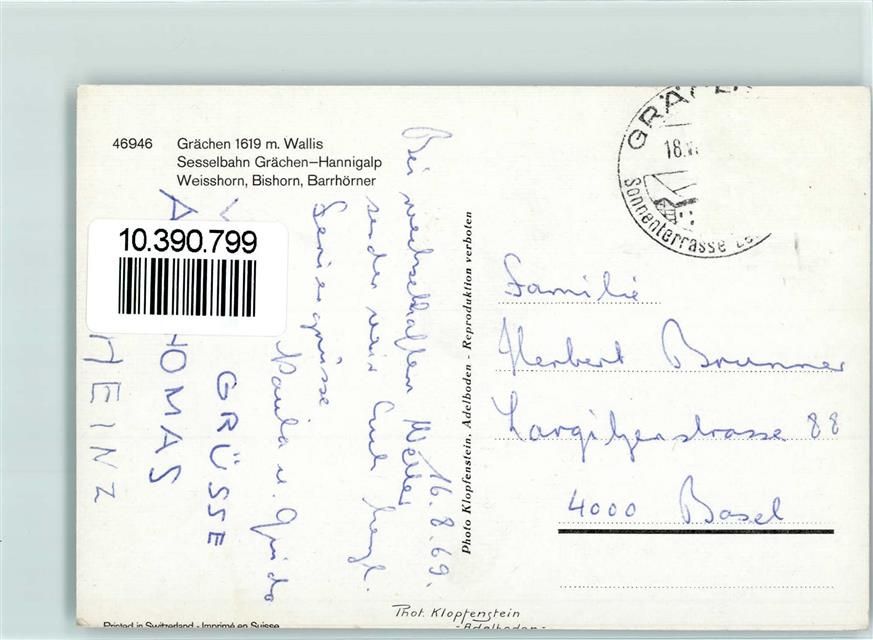 46946 Grächen 1619 m. Wallis
Sesselbahn Grächen–Hannigalp
Weisshorn, Bishorn, Barrhörner
10.390.799
16.8.69.
Bei wechselhaftem Wetter
senden wir Euch herzl.
Feriengrüsse
Paula u. Guido
GRÜSSE
HOMAS
HEINZ
Photo Klopfenstein, Adelboden - Reproduktion verboten
GRÄCHEN
18.VI
Sonnenterrasse
Familie
Herbert Brunner
Largitzenstrasse 88
4000 Basel
Phot. Klopfenstein
- Adelboden -
Printed in Switzerland - Imprimé en Suisse